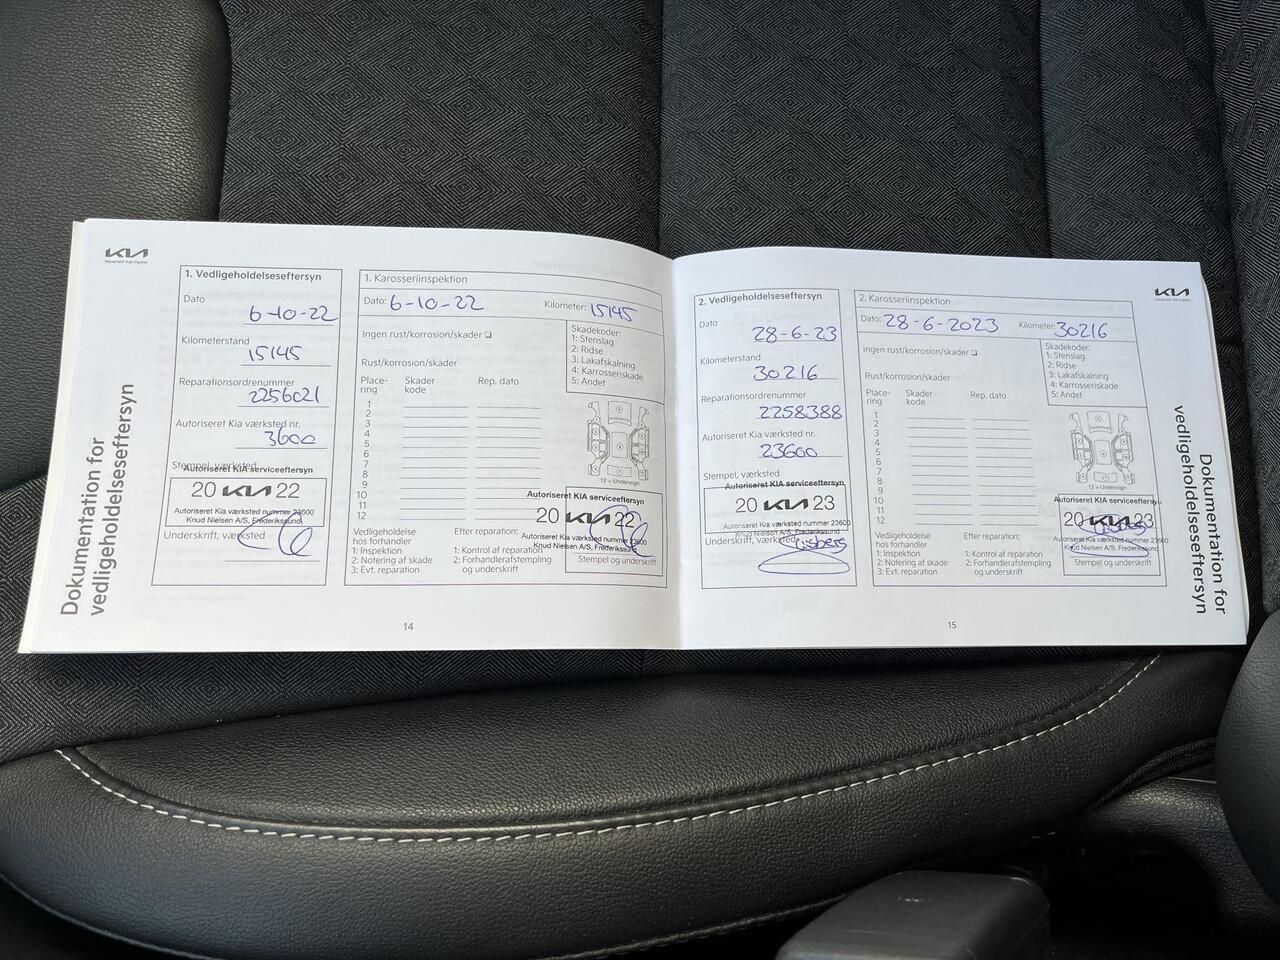 KIA
Movement that inspires
Dokumentation for
vedligeholdelseseftersyn
1. Vedligeholdelseseftersyn
Dato
6-10-22
Kilometerstand
15145
Reparationsordrenummer
2256021
Autoriseret Kia værksted nr.
3600
Stempel, værksted
Autoriseret KIA serviceeftersyn
20 KIA 22
Autoriseret Kia værksted nummer 23600
Knud Nielsen A/S, Frederikssund
Underskrift, værksted
1. Karosseriinspektion
Dato: 6-10-22 Kilometer: 15145
Ingen rust/korrosion/skader
Rust/korrosion/skader
Place-
ring
Skader
kode
Rep. dato
1
2
3
4
5
6
7
8
9
10
11
12
Skadekoder:
1: Stenslag
2: Ridse
3: Lakafskalning
4: Karrosseriskade
5: Andet
12 = Undervogn
Vedligeholdelse
hos forhandler
1: Inspektion
2: Notering af skade
3: Evt. reparation
Efter reparation:
1: Kontrol af reparation
2: Forhandlerafstempling
og underskrift
Autoriseret KIA serviceeftersyn
20 KIA 22
Autoriseret Kia værksted nummer 23600
Knud Nielsen A/S, Frederikssund
Stempel og underskrift
14
2. Vedligeholdelseseftersyn
Dato
28-6-23
Kilometerstand
30216
Reparationsordrenummer
2258388
Autoriseret Kia værksted nr.
23600
Stempel, værksted
Autoriseret KIA serviceeftersyn
20 KIA 23
Autoriseret Kia værksted nummer 23600
Knud Nielsen A/S, Frederikssund
Underskrift, værksted
2. Karosseriinspektion
Dato: 28-6-2023 Kilometer: 30216
Ingen rust/korrosion/skader
Rust/korrosion/skader
Place-
ring
Skader
kode
Rep. dato
1
2
3
4
5
6
7
8
9
10
11
12
Skadekoder:
1: Stenslag
2: Ridse
3: Lakafskalning
4: Karrosseriskade
5: Andet
12 = Undervogn
Vedligeholdelse
hos forhandler
1: Inspektion
2: Notering af skade
3: Evt. reparation
Efter reparation:
1: Kontrol af reparation
2: Forhandlerafstempling
og underskrift
Autoriseret KIA serviceeftersyn
20 KIA 23
Autoriseret Kia værksted nummer 23600
Knud Nielsen A/S, Frederikssund
Stempel og underskrift
15
KIA
Movement that inspires
Dokumentation for
vedligeholdelseseftersyn